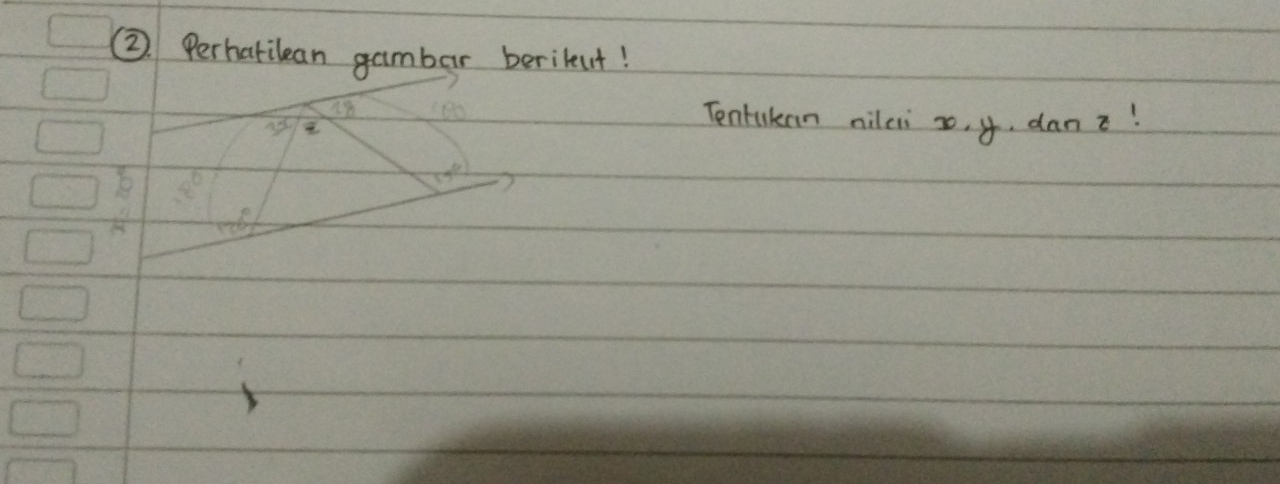 ② Perhatikan gambar berikut !
Tentukan nilai x, y, dan z !
z
180
180